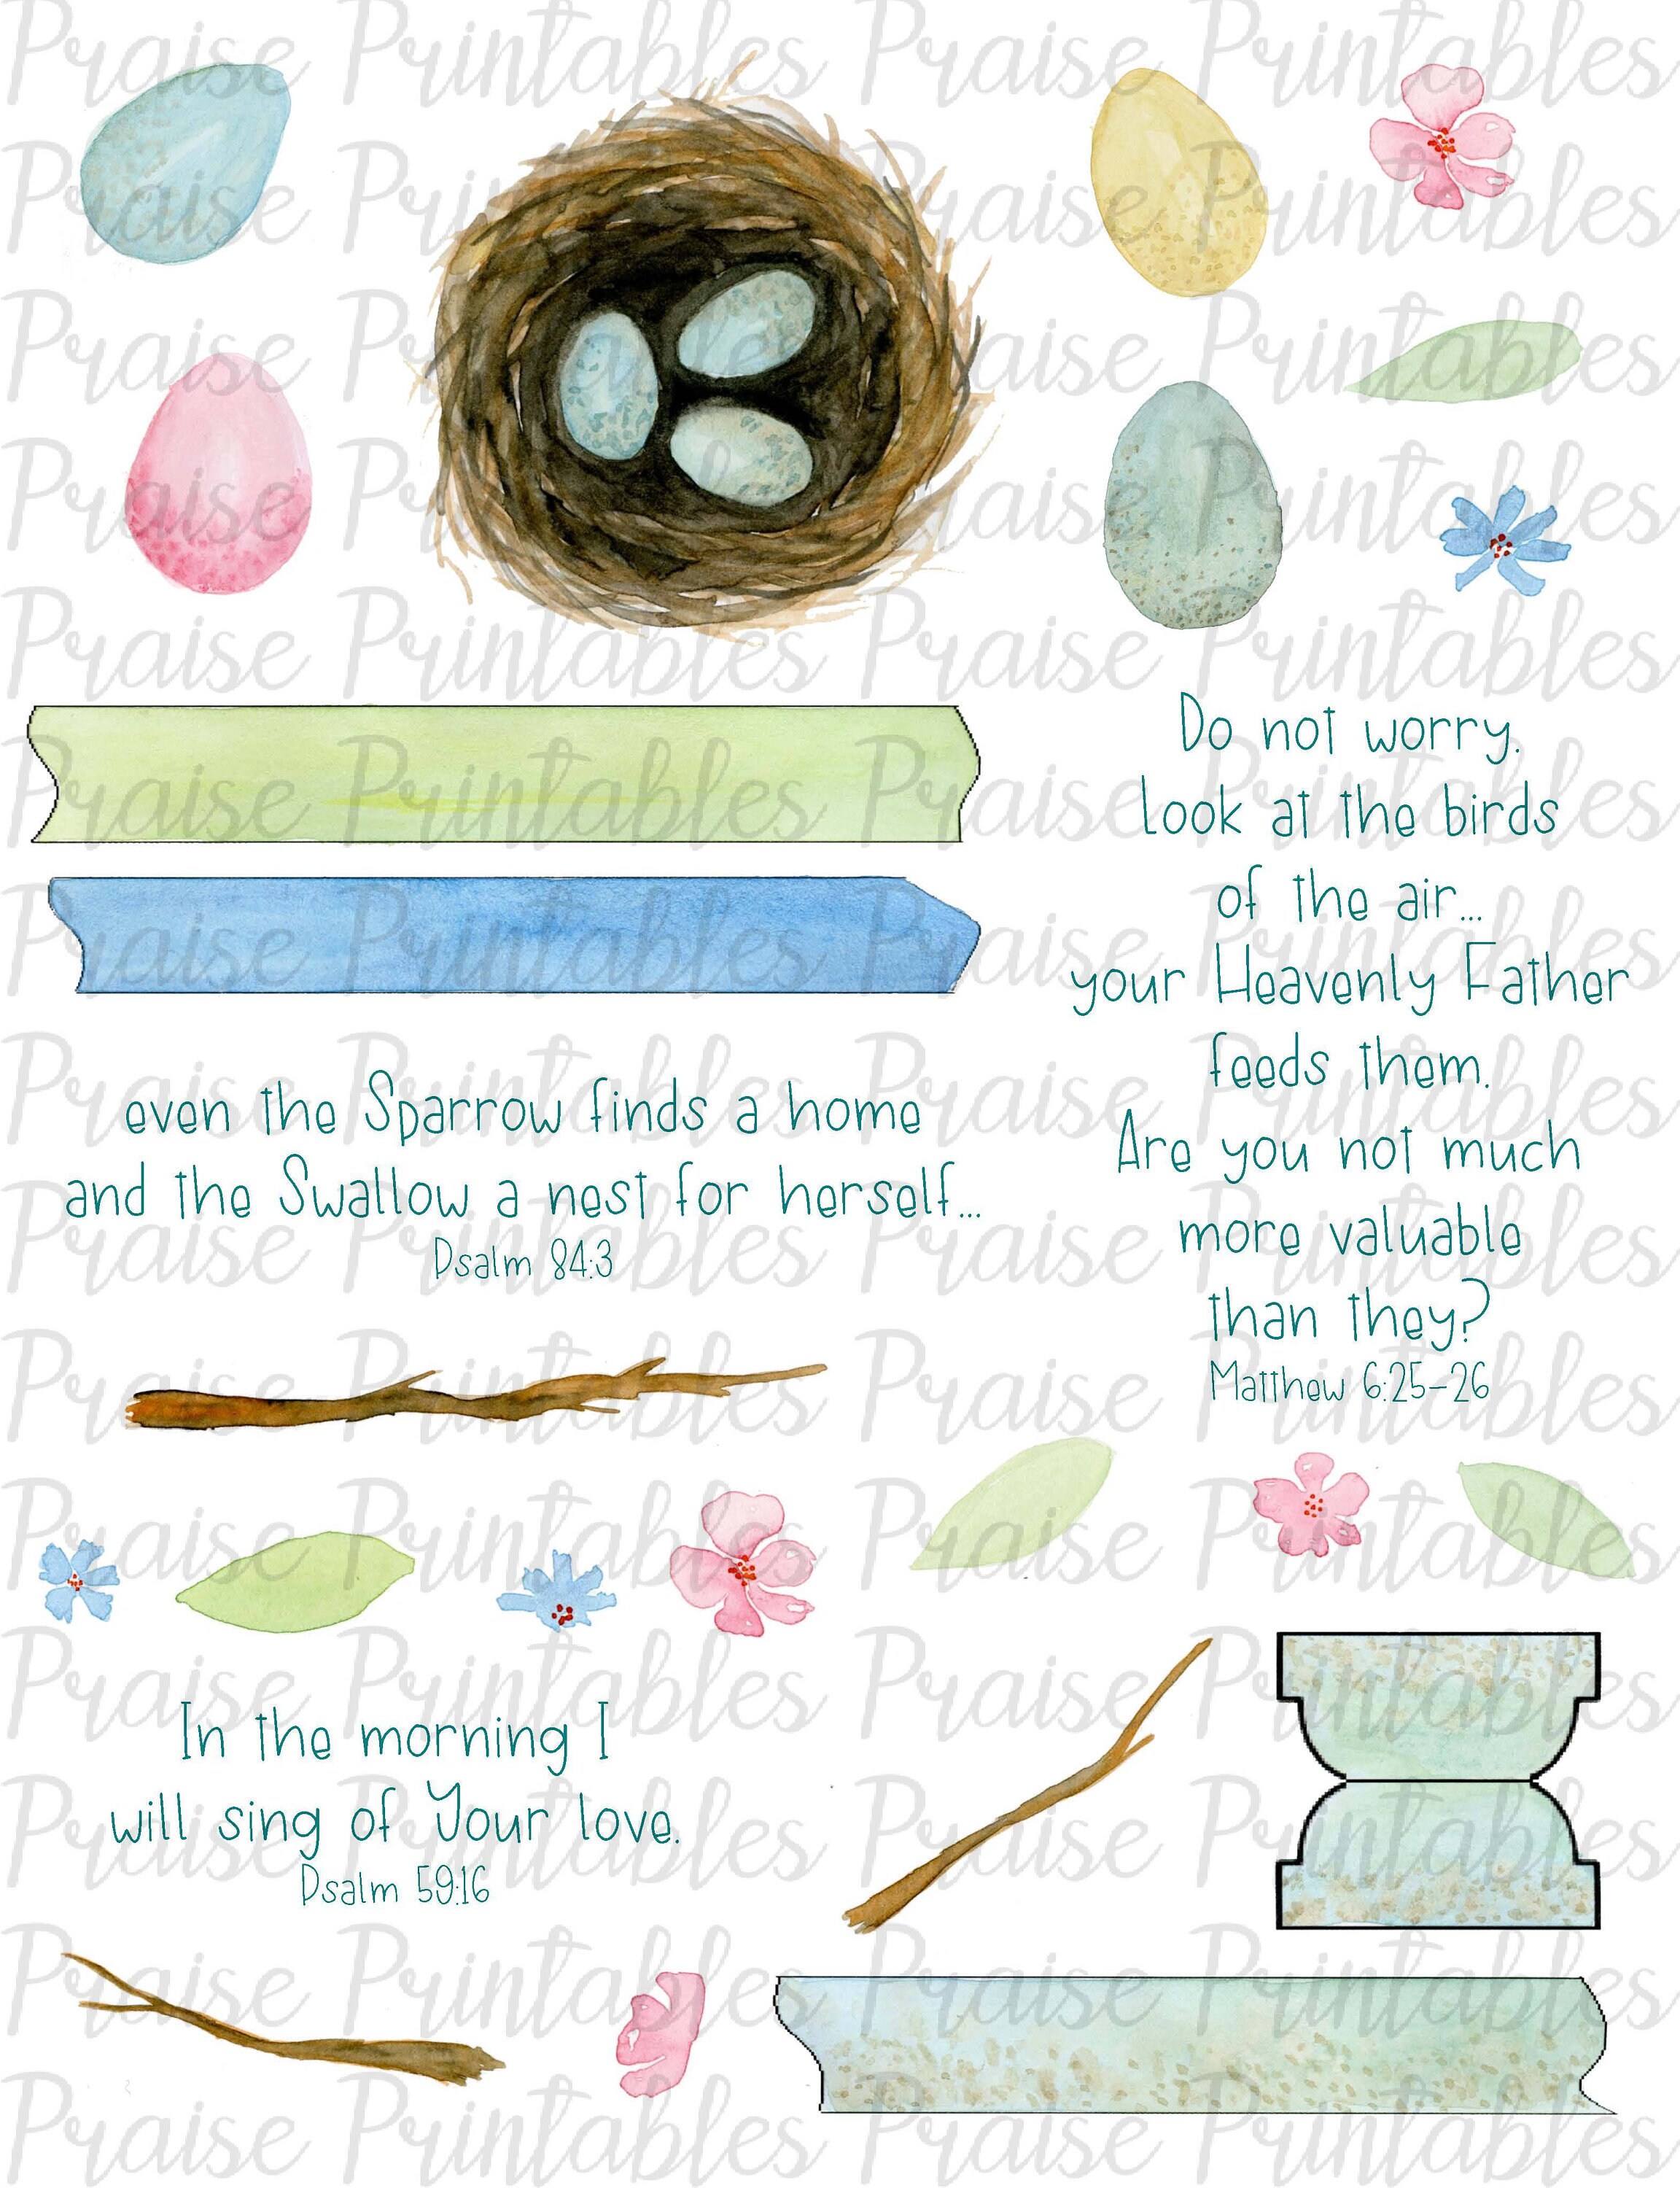 Praise Printables
Do not worry.
Look at the birds
of the air...
your Heavenly Father
feeds them.
Are you not much
more valuable
than they?
Matthew 6:25-26
even the Sparrow finds a home
and the Swallow a nest for herself...
Psalm 84:3
In the morning I
will sing of Your love.
Psalm 59:16